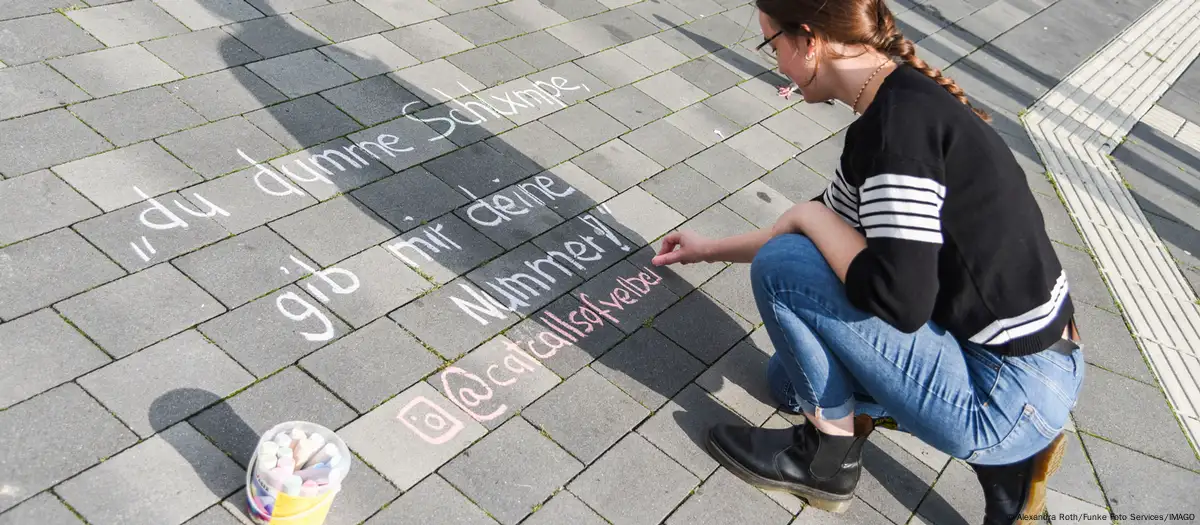 „du dumme Schlxmpe,
gib mir deine
Nummer!"
@catcallsofvelbe
Alexandra Roth/Funke Foto Services/IMAGO